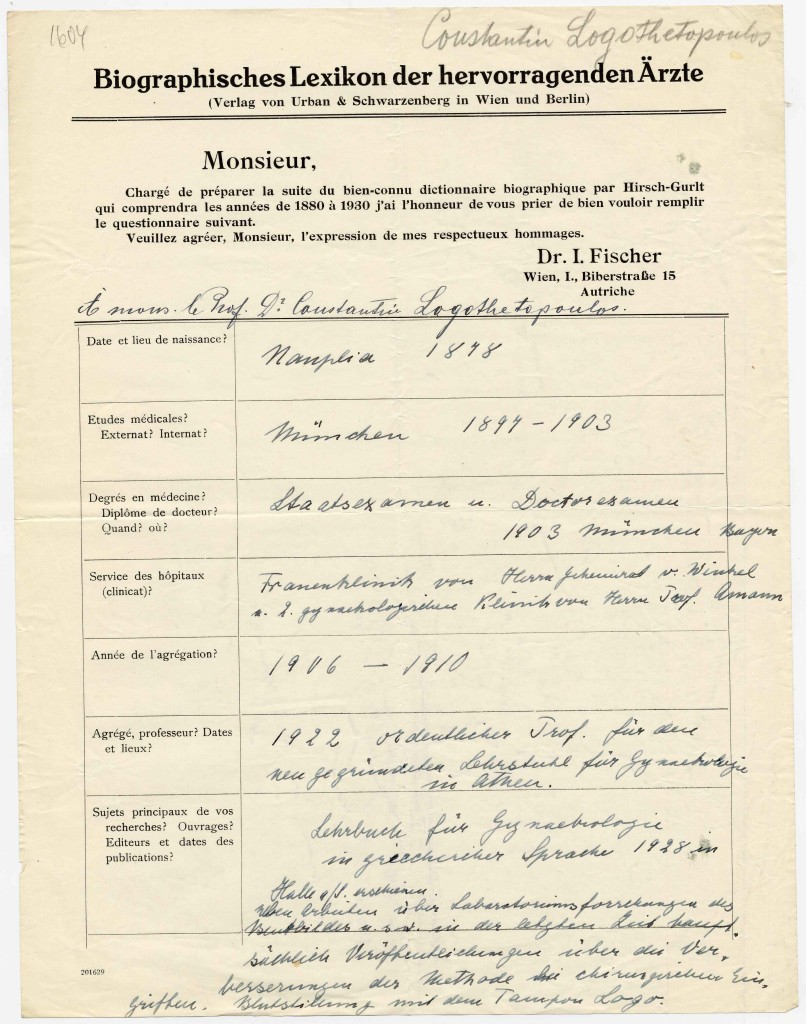 1604
Constantin Logothetopoulos
Biographisches Lexikon der hervorragenden Ärzte
(Verlag von Urban & Schwarzenberg in Wien und Berlin)
Monsieur,
Chargé de préparer la suite du bien-connu dictionnaire biographique par Hirsch-Gurlt
qui comprendra les années de 1880 à 1930 j'ai l'honneur de vous prier de bien vouloir remplir
le questionnaire suivant.
Veuillez agréer, Monsieur, l'expression de mes respectueux hommages.
Dr. I. Fischer
Wien, I., Biberstraße 15
Autriche
À mons. le Prof. Dr Constantin Logothetopoulos.
Date et lieu de naissance?
Nauplia 1878
Etudes médicales?
Externat? Internat?
München 1897 - 1903
Degrés en médecine?
Diplôme de docteur?
Quand? où?
Staatsexamen u. Doctorexamen
1903 München Bayern
Service des hôpitaux
(clinicat)?
Frauenklinik von Herrn Geheimrat v. Winkel
u. 2. gynaekologischen Klinik von Herrn Prof. Amann
Année de l'agrégation?
1906 - 1910
Agrégé, professeur? Dates
et lieux?
1922 ordentlicher Prof. für den
neu gegründeten Lehrstuhl für Gynaekologie
in Athen.
Sujets principaux de vos
recherches? Ouvrages?
Editeurs et dates des
publications?
Lehrbuch für Gynaekologie
in griechischer Sprache 1928 in
Halle a/S. erschienen.
Arbeiten über Laboratoriumsforschungen des
Blutbildes u.s.w. in der letzten Zeit haupt-
sächlich Veröffentlichungen über die Ver-
besserungen der Methode bei chirurgischen Ein-
griffen. Blutstillung mit dem Tampon Logo.
201629